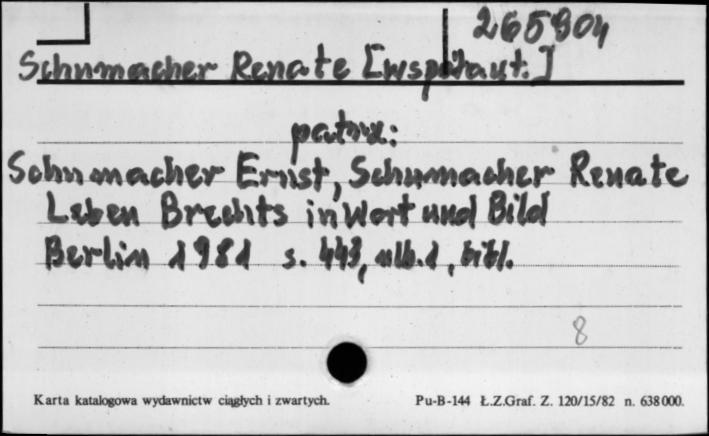 265904
Schumacher Renate [współaut.]
patrz:
Schumacher Ernst, Schumacher Renate
Leben Brechts in Wort und Bild
Berlin 1981 s. 443, alb. 1, bibl.
8
Karta katalogowa wydawnictw ciągłych i zwartych. Pu-B-144 Ł.Z.Graf. Z. 120/15/82 n. 638000.